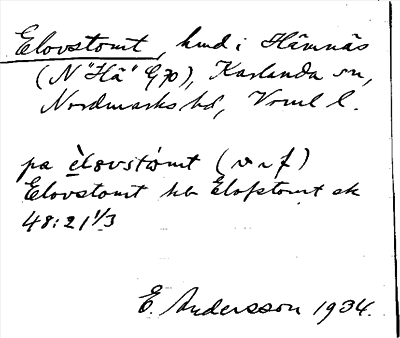 Elovstomt, hmd i Hämnäs
(N "Hä" G70), Karlanda sn,
Nordmarks hd, Vrml l.
pa èlovstòmt (v ~ f)
Elovstomt hb Elofstomt ek
48:21 1/3
E. Andersson 1934.